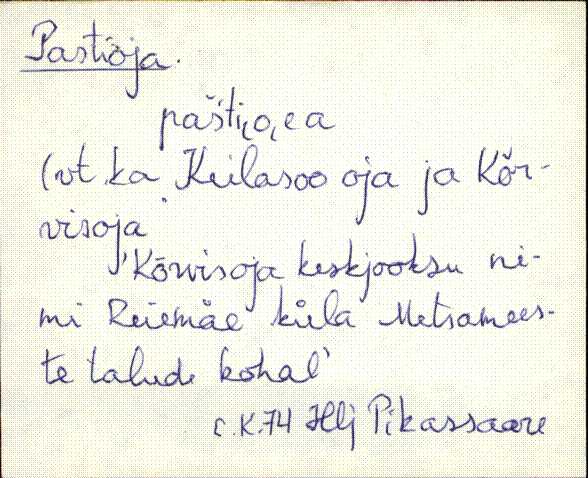 Pastioja.
paš́ti‿o‿ea
(vt. ka Keilasoo oja ja Kõr-
visoja
'Kõrvisoja keskjooksu ni-
mi Reiemäe küla Metsamees-
te talude kohal'
K.74 Hlj Pikassaare